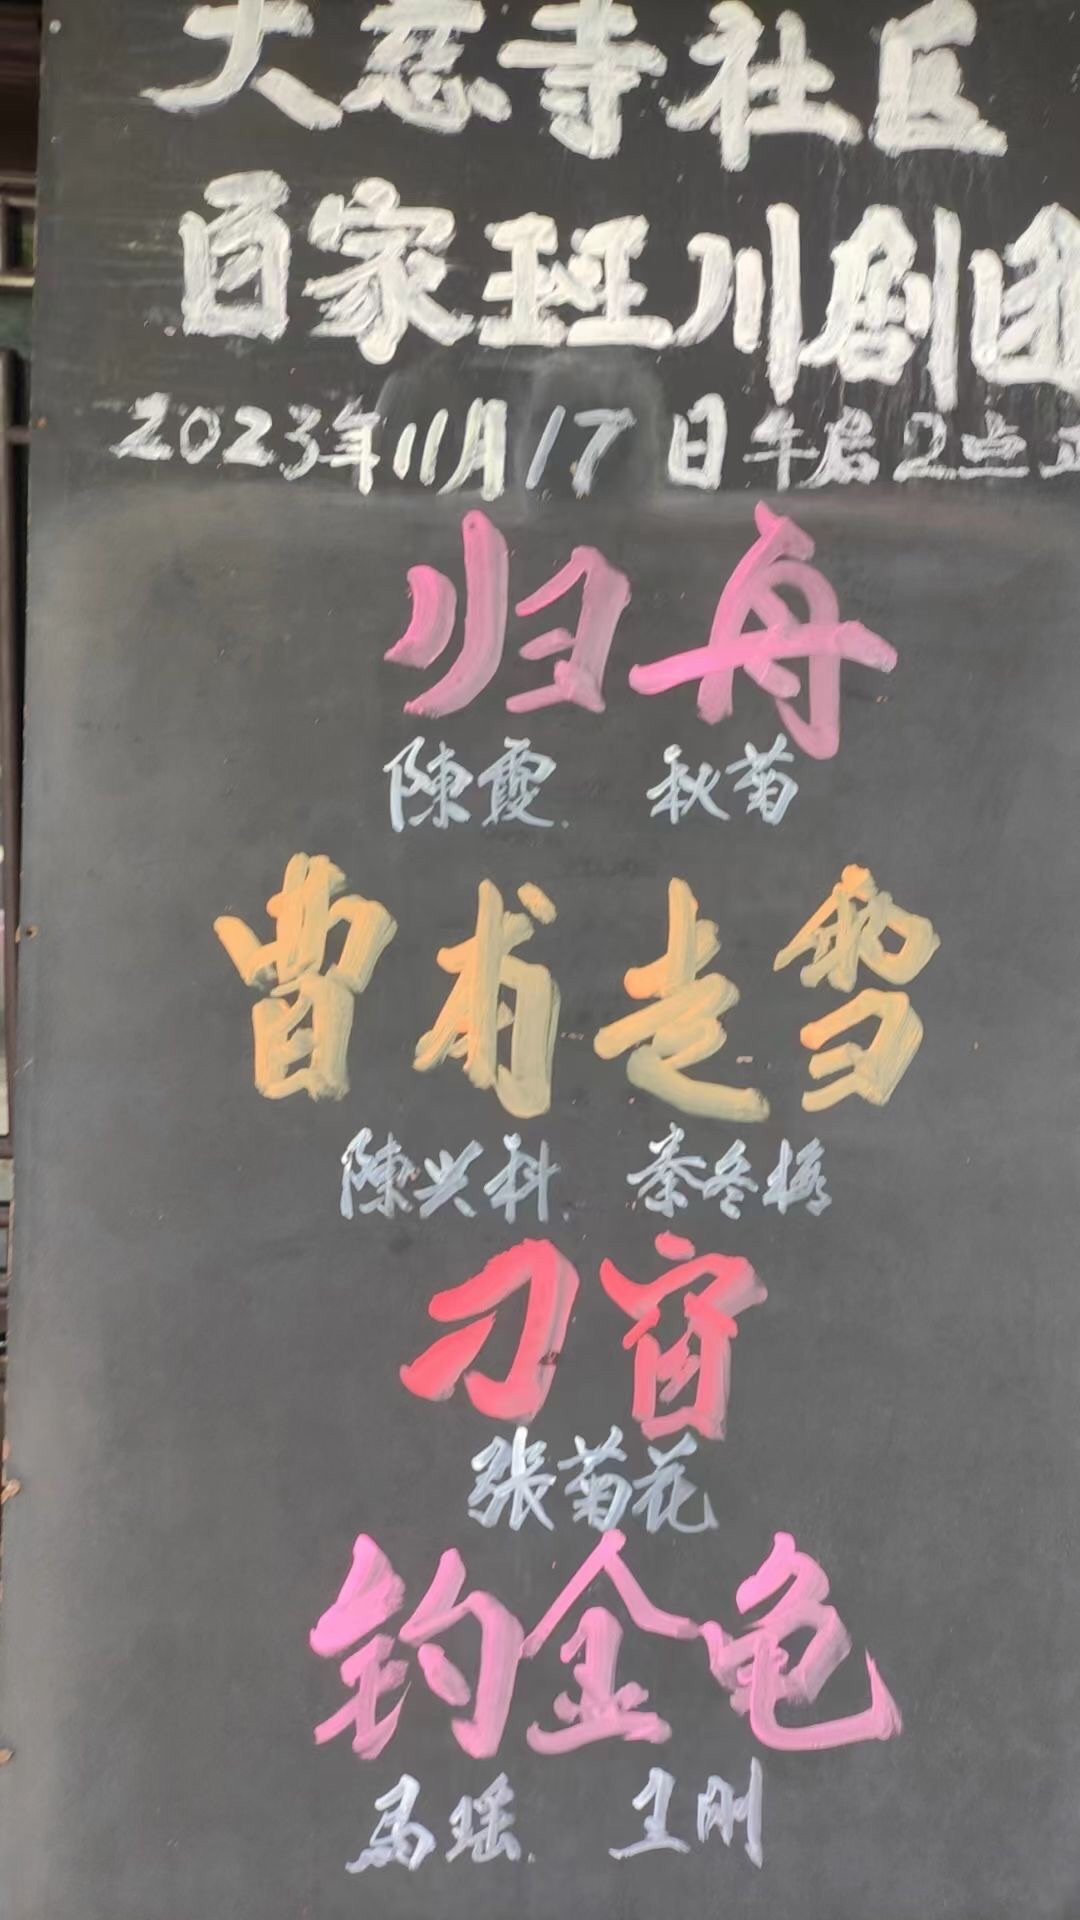 大慈寺社区
百家班川剧团
2023年11月17日午后2点正
归舟
陳霞 秋菊
曹甫走雪
陳兴科 秦冬梅
刁窗
张菊花
钓金龟
马瑶 王刚